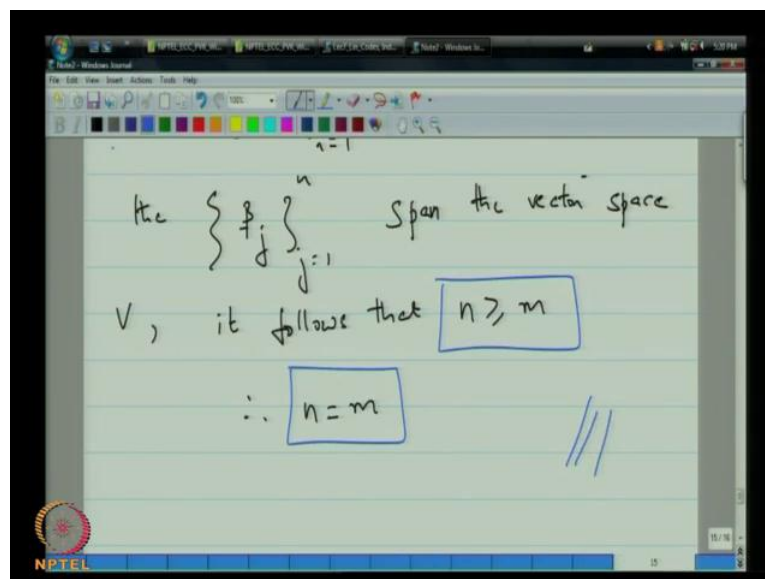 5:20 PM
Note2 - Windows Journal
File Edit View Insert Actions Tools Help
the { β_j }_{j=1}^{n} span the vector space
V, it follows that n ≥ m
∴ n = m
15/16
15
NPTEL